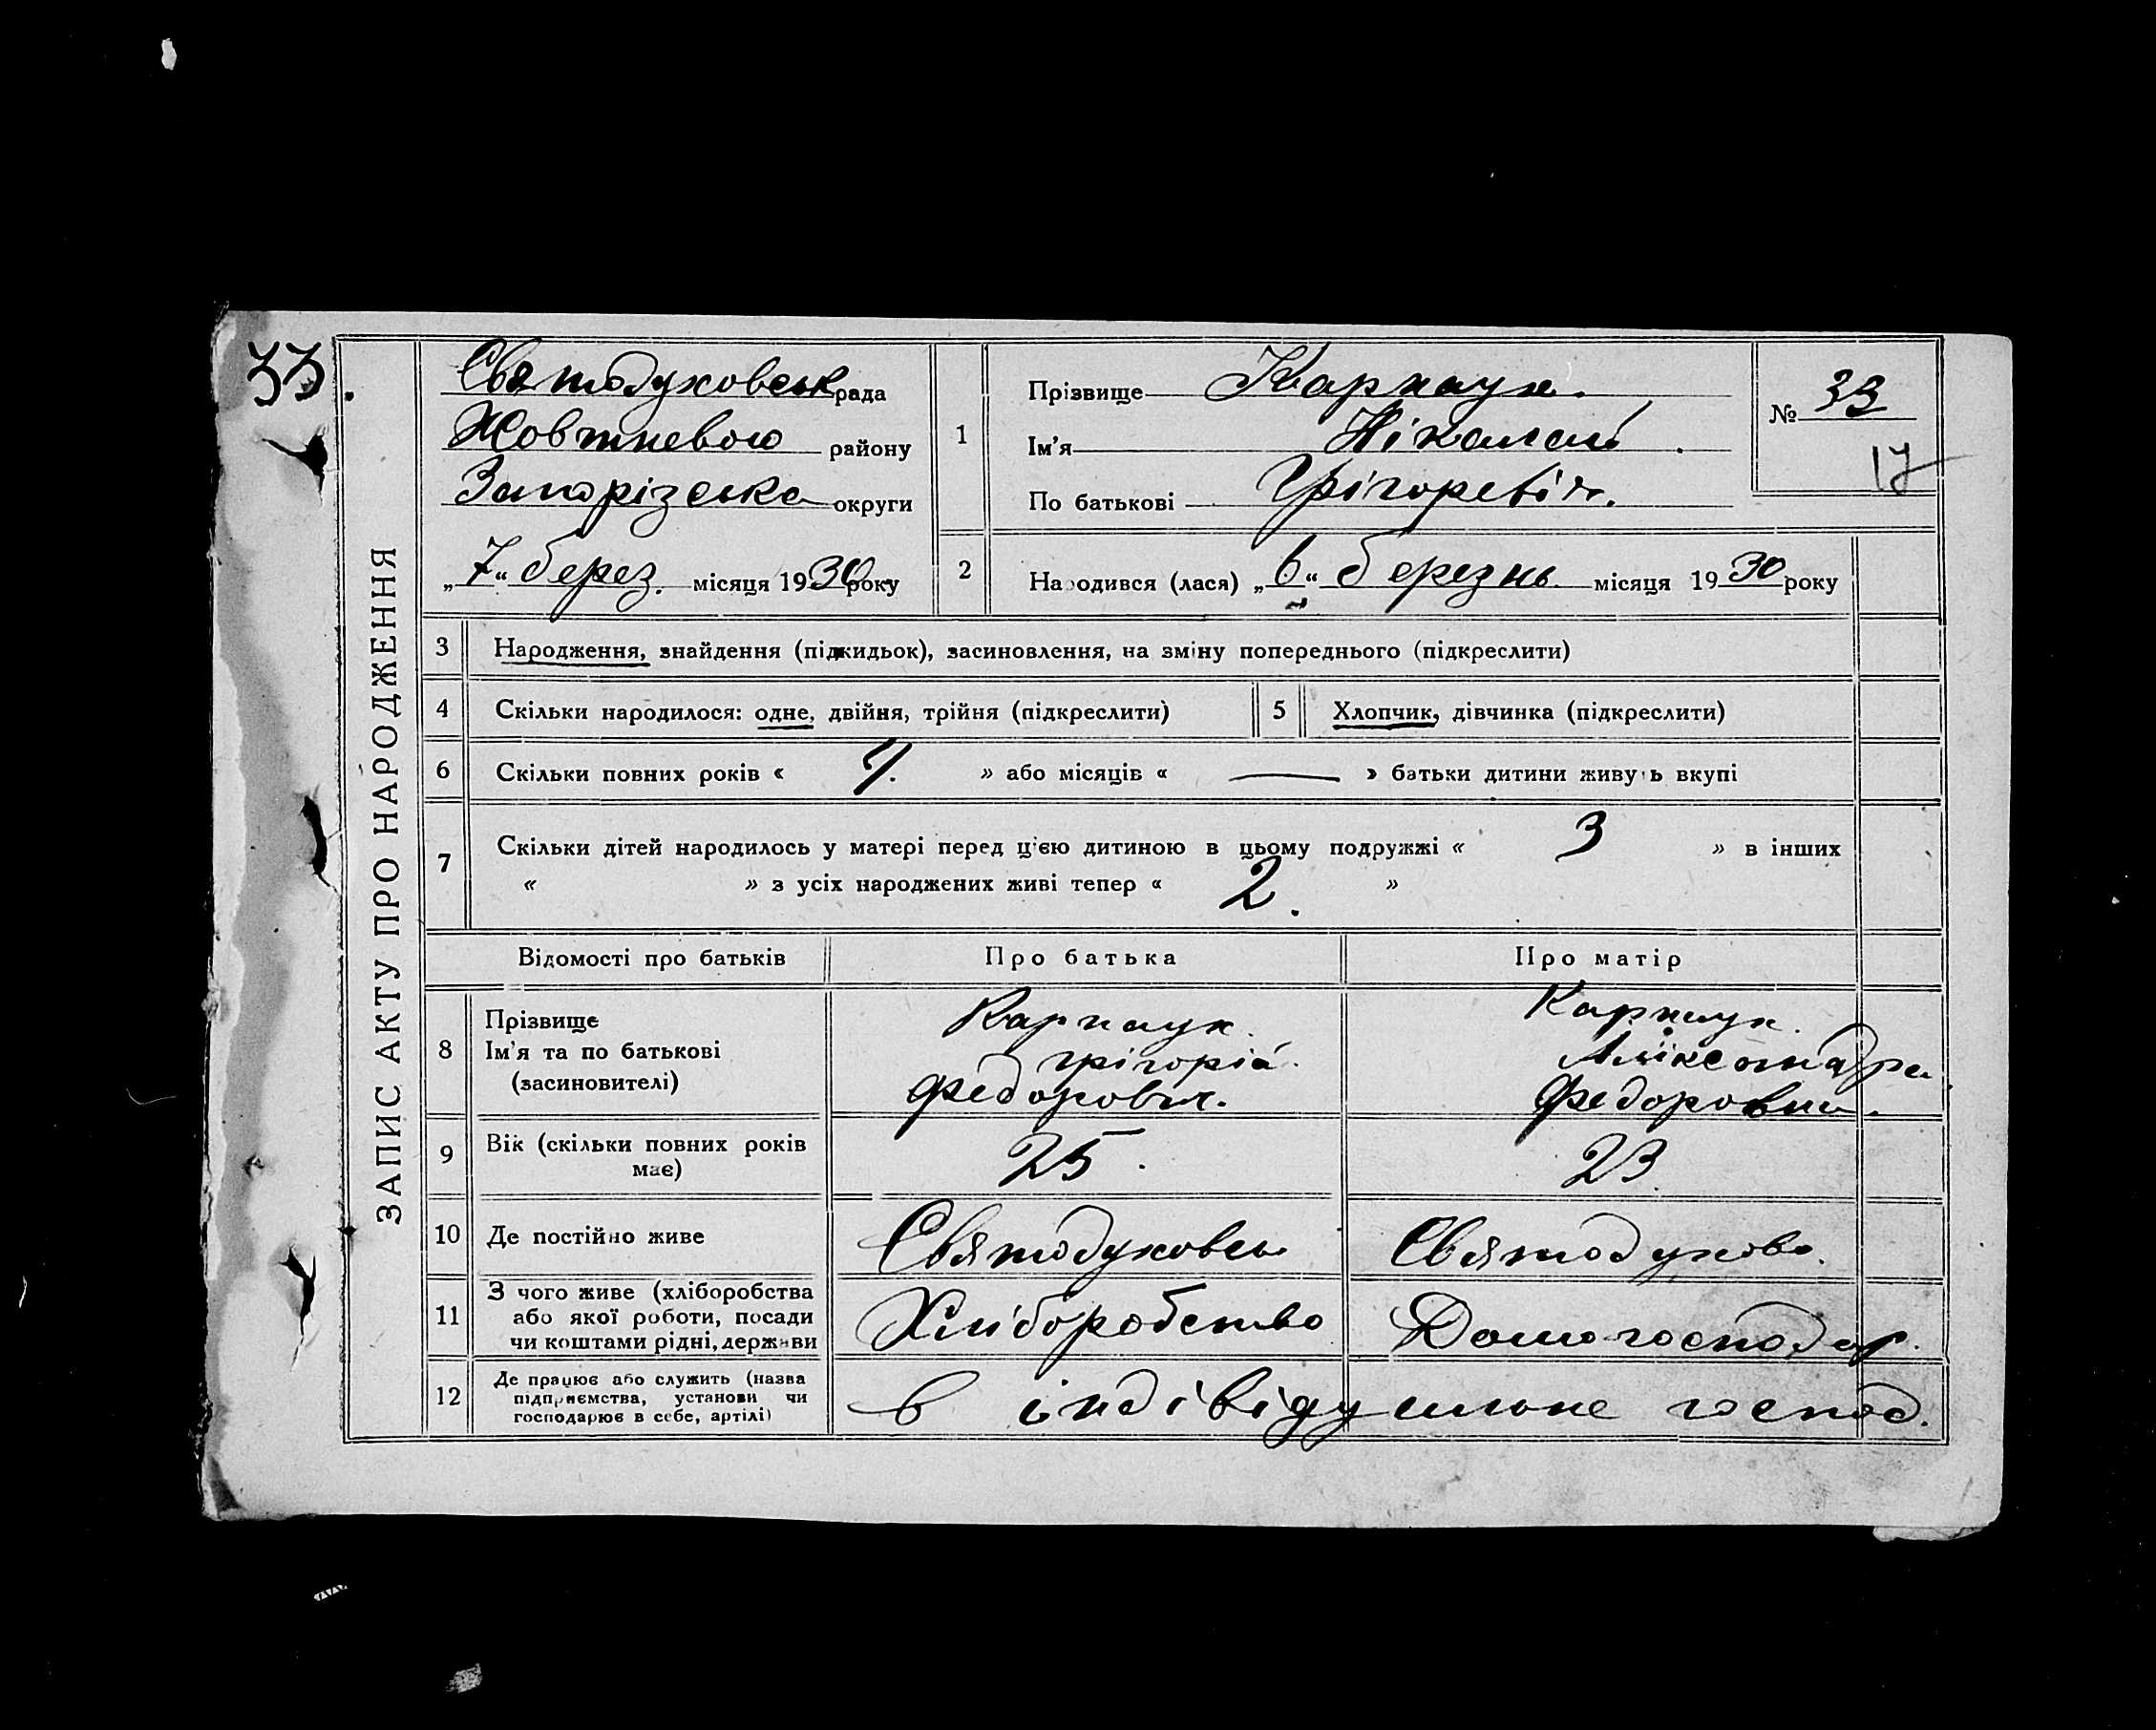 33.
ЗАПИС АКТУ ПРО НАРОДЖЕННЯ
Святодуховськ рада
Жовтневою району
Запорізська округи
„7“ берез. місяця 1930 року
1
Прізвище Карнаух.
Ім’я Ніколай.
По батькові Грігоревіч.
№ 33
17
2 Народився (лася) „6“ березнь місяця 1930 року
3 Народження, знайдення (підкидьок), засиновлення, на зміну попереднього (підкреслити)
4 Скільки народилося: одне, двійня, трійня (підкреслити) 5 Хлопчик, дівчинка (підкреслити)
6 Скільки повних років « 7. » або місяців « — » батьки дитини живуть вкупі
7 Скільки дітей народилось у матері перед цією дитиною в цьому подружжі « 3 » в інших
« » з усіх народжених живі тепер « 2. »
Відомості про батьків Про батька Про матір
8 Прізвище
Ім’я та по батькові
(засиновителі)
Карнаух.
Грігорій.
Федорович.
Карнаух.
Аліксандра
Федоровна.
9 Вік (скільки повних років
має)
25.
23.
10 Де постійно живе Святодуховсь Святодухово.
11 З чого живе (хліборобства
або якої роботи, посади
чи коштами рідні, держави
Хліборобство Домогосподар.
12 Де працює або служить (назва
підприємства, установи чи
господарює в себе, артілі)
в індівідуальне господ.